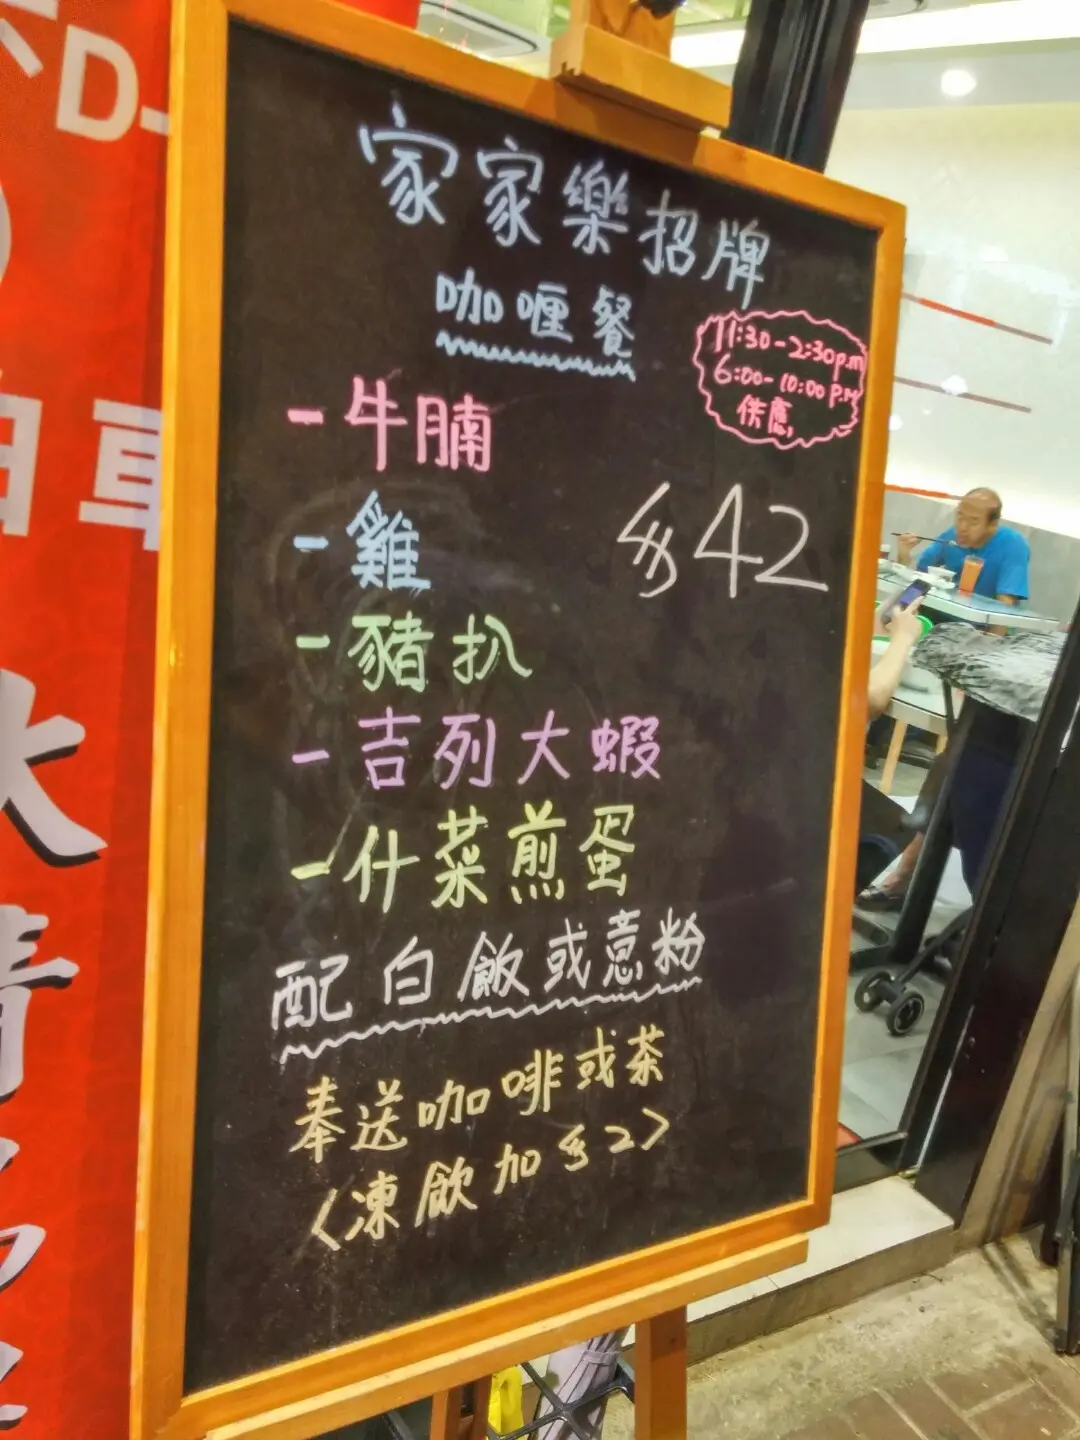 家家樂招牌
咖喱餐
11:30-2:30p.m
6:00-10:00P.M
供應
-牛腩
-雞
$42
-豬扒
-吉列大蝦
-什菜煎蛋
配白飯或意粉
奉送咖啡或茶
<凍飲加$2>
D-